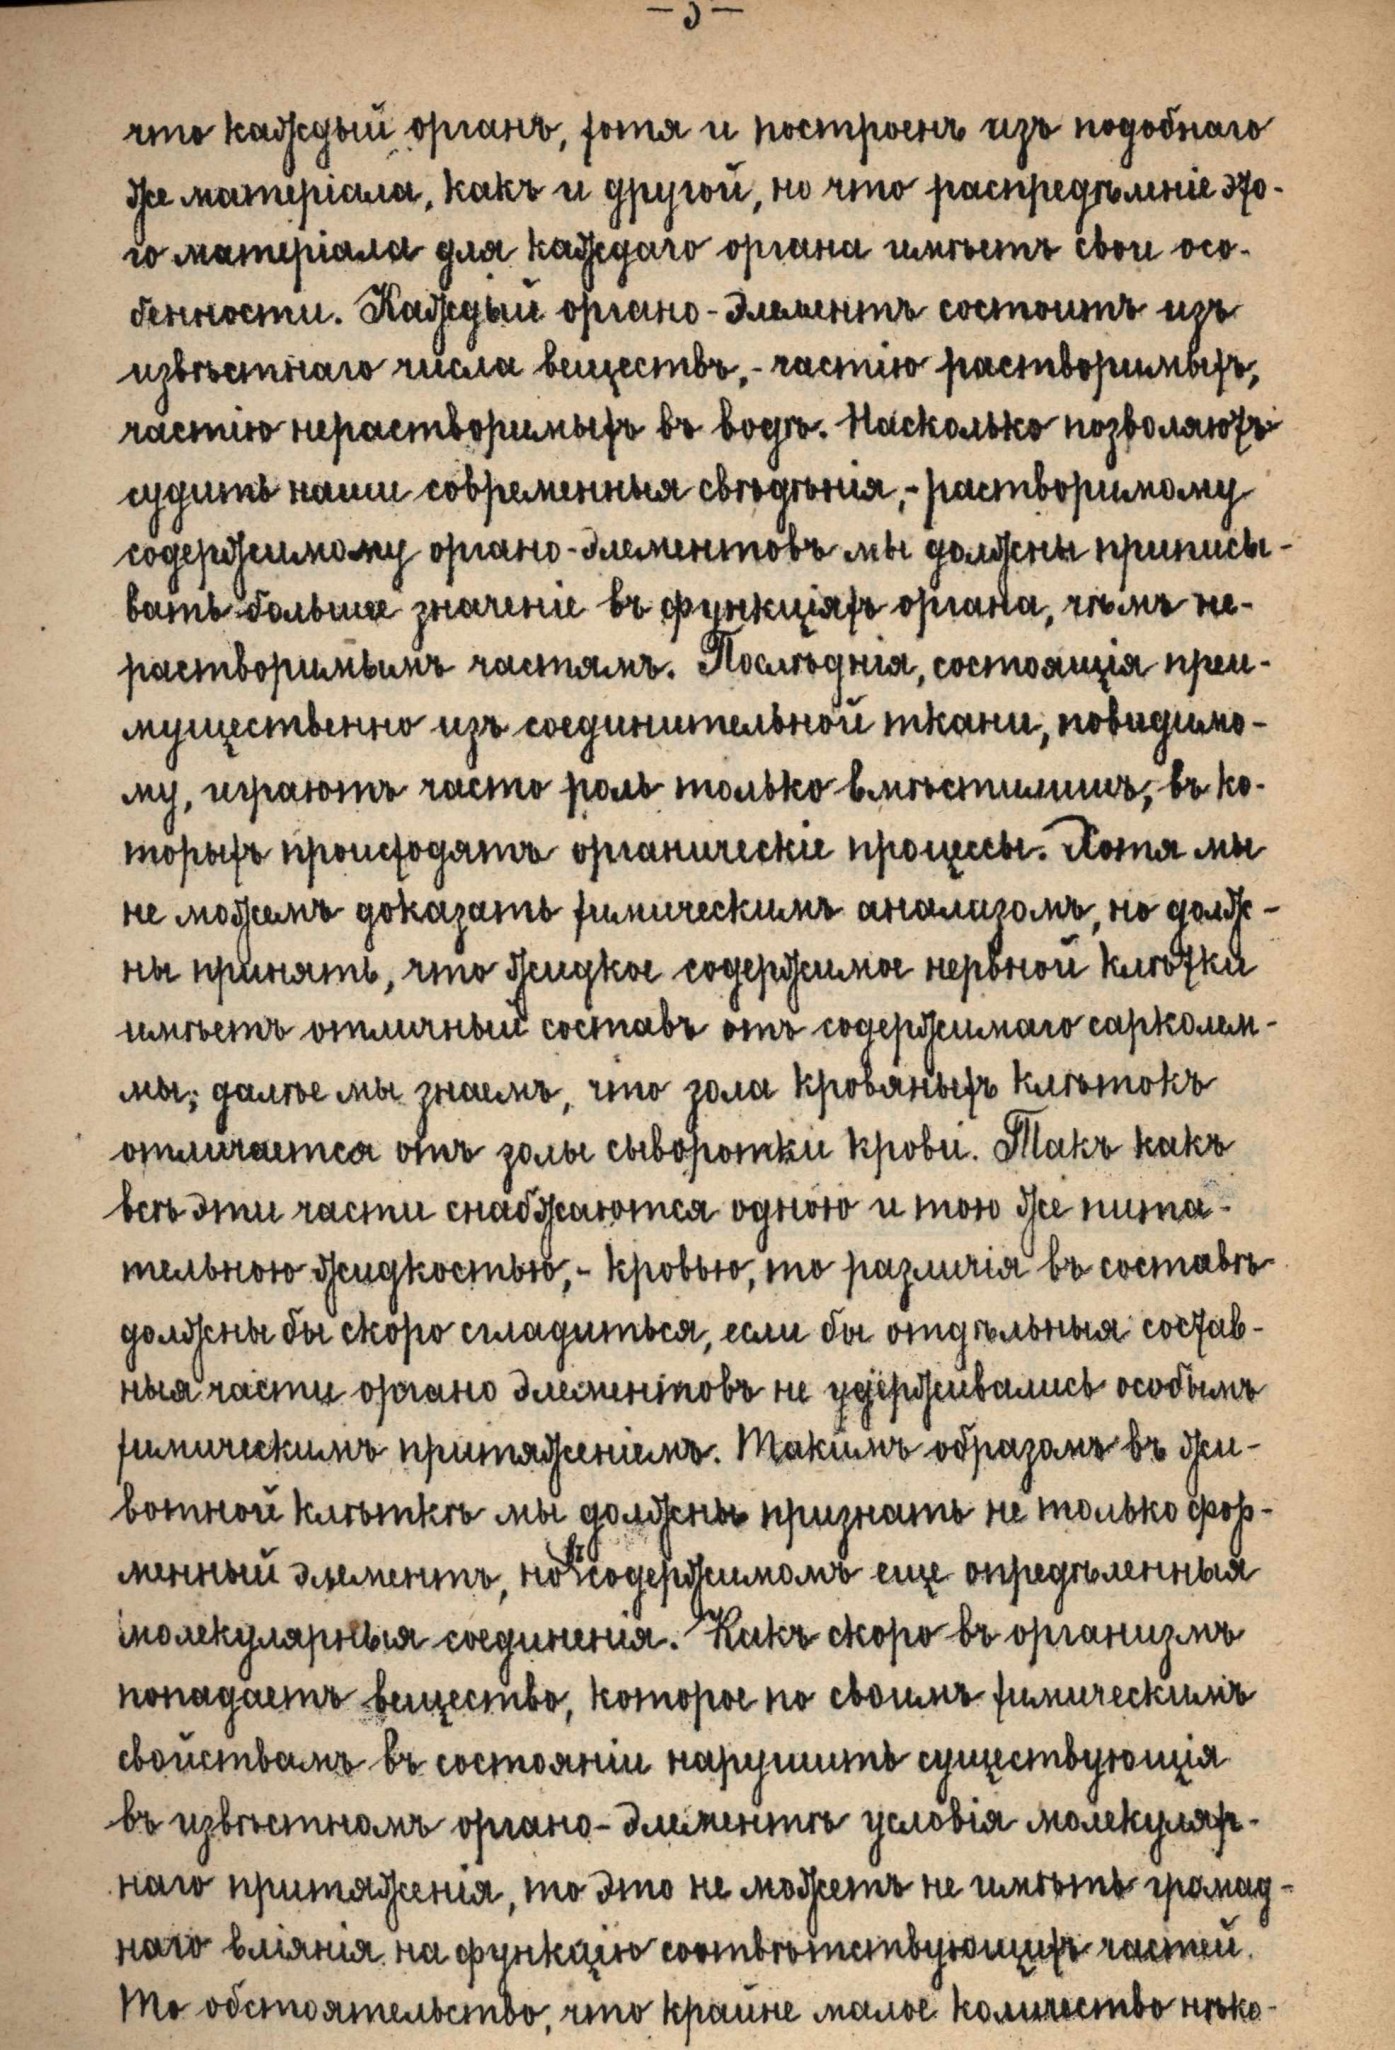 что каждый органъ, хотя и построенъ изъ подобнаго
же матеріала, какъ и другой, но что распредѣленіе это-
го матеріала для каждаго органа имѣетъ свои осо-
бенности. Каждый органо-элементъ состоитъ изъ
извѣстнаго числа веществъ,- частію растворимыхъ,
частію нерастворимыхъ въ водѣ. Насколько позволяютъ
судить наши современныя свѣдѣнія,- растворимому
содержимому органо-элементовъ мы должны приписы-
вать большее значеніе въ функціяхъ органа, чѣмъ не-
растворимымъ частямъ. Послѣднія, состоящія преи-
мущественно изъ соединительной ткани, повидимо-
му, играютъ часто роль только вмѣстилищъ, въ ко-
торыхъ происходятъ органическіе процессы. Хотя мы
не можемъ доказать химическимъ анализомъ, но долж-
ны принять, что жидкое содержимое нервной клѣтки
имѣетъ отличный составъ отъ содержимаго сарколем-
мы; далѣе мы знаемъ, что зола кровяныхъ клѣтокъ
отличается отъ золы сыворотки крови. Такъ какъ
всѣ эти части снабжаются одною и тою же пита-
тельною жидкостью,- кровью, то различія въ составѣ
должны бы скоро сгладиться, если бы отдѣльныя состав-
ныя части органо элементовъ не удерживались особымъ
химическимъ притяженіемъ. Такимъ образомъ въ жи-
вотной клѣткѣ мы должны признать не только фор-
менный элементъ, но въ содержимомъ еще опредѣленныя
молекулярныя соединенія. Какъ скоро въ организмъ
попадаетъ вещество, которое по своимъ химическимъ
свойствамъ въ состояніи нарушить существующія
въ извѣстномъ органо-элементѣ условія молекуляр-
наго притяженія, то это не можетъ не имѣть громад-
наго вліянія на функцію соотвѣтствующихъ частей.
То обстоятельство, что крайне малое количество нѣко-